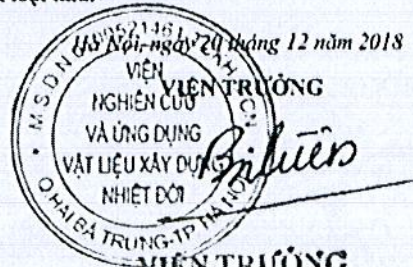 Hà Nội, ngày 20 tháng 12 năm 2018
VIỆN TRƯỞNG
VIỆN
NGHIÊN CỨU
VÀ ỨNG DỤNG
VẬT LIỆU XÂY DỰNG
NHIỆT ĐỚI
Q.HAI BÀ TRƯNG-TP HÀ NỘI
VIỆN TRƯỞNG